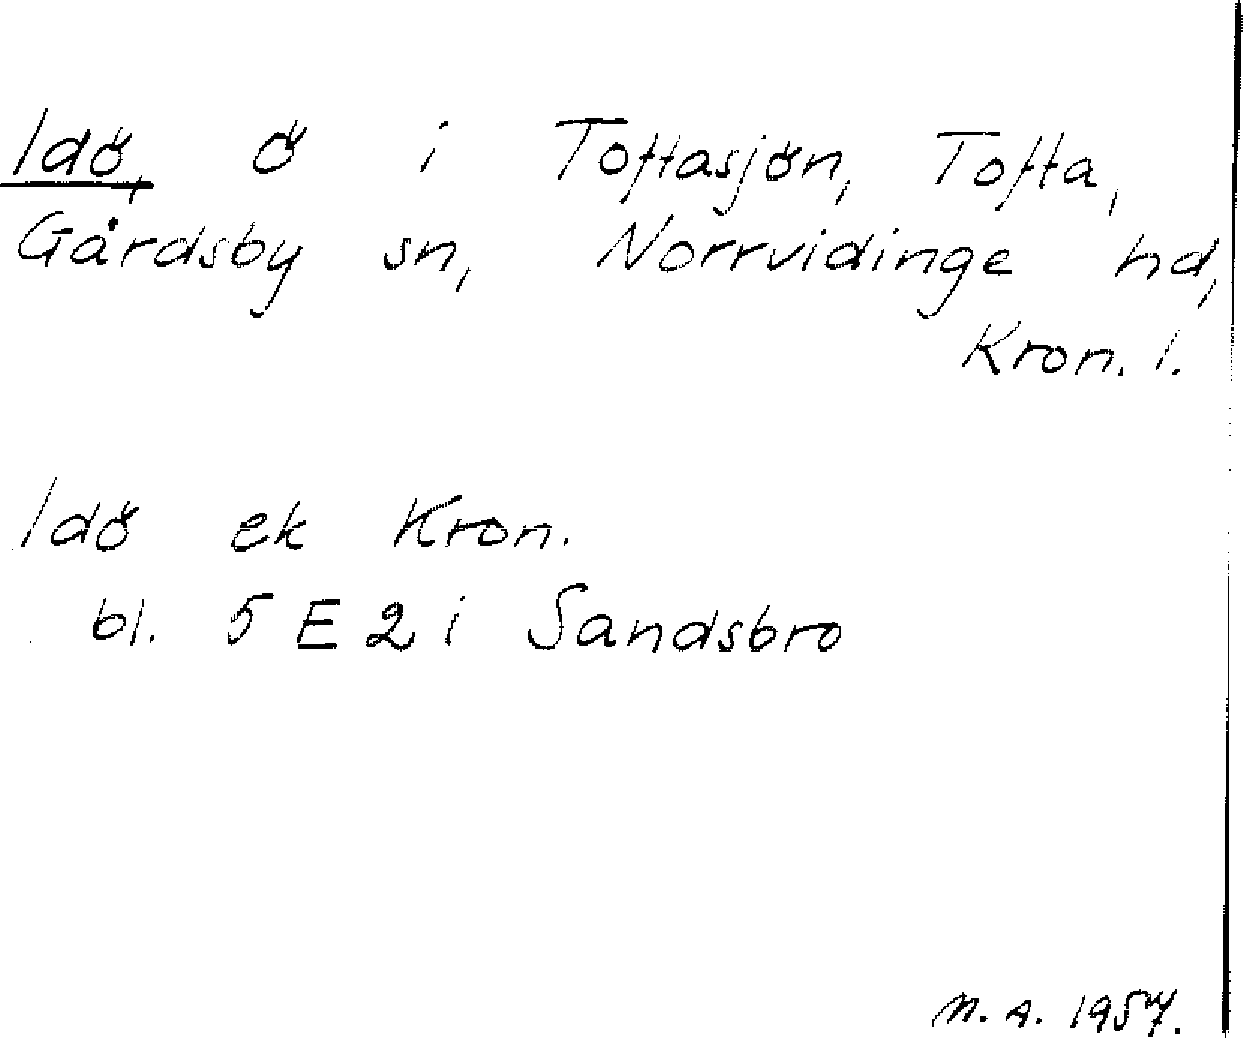 Idö, ö i Toftasjön, Tofta,
Gårdsby sn, Norrvidinge hd,
Kron. l.
Idö ek Kron.
bl. 5 E 2 i Sandsbro
N. A. 1957.